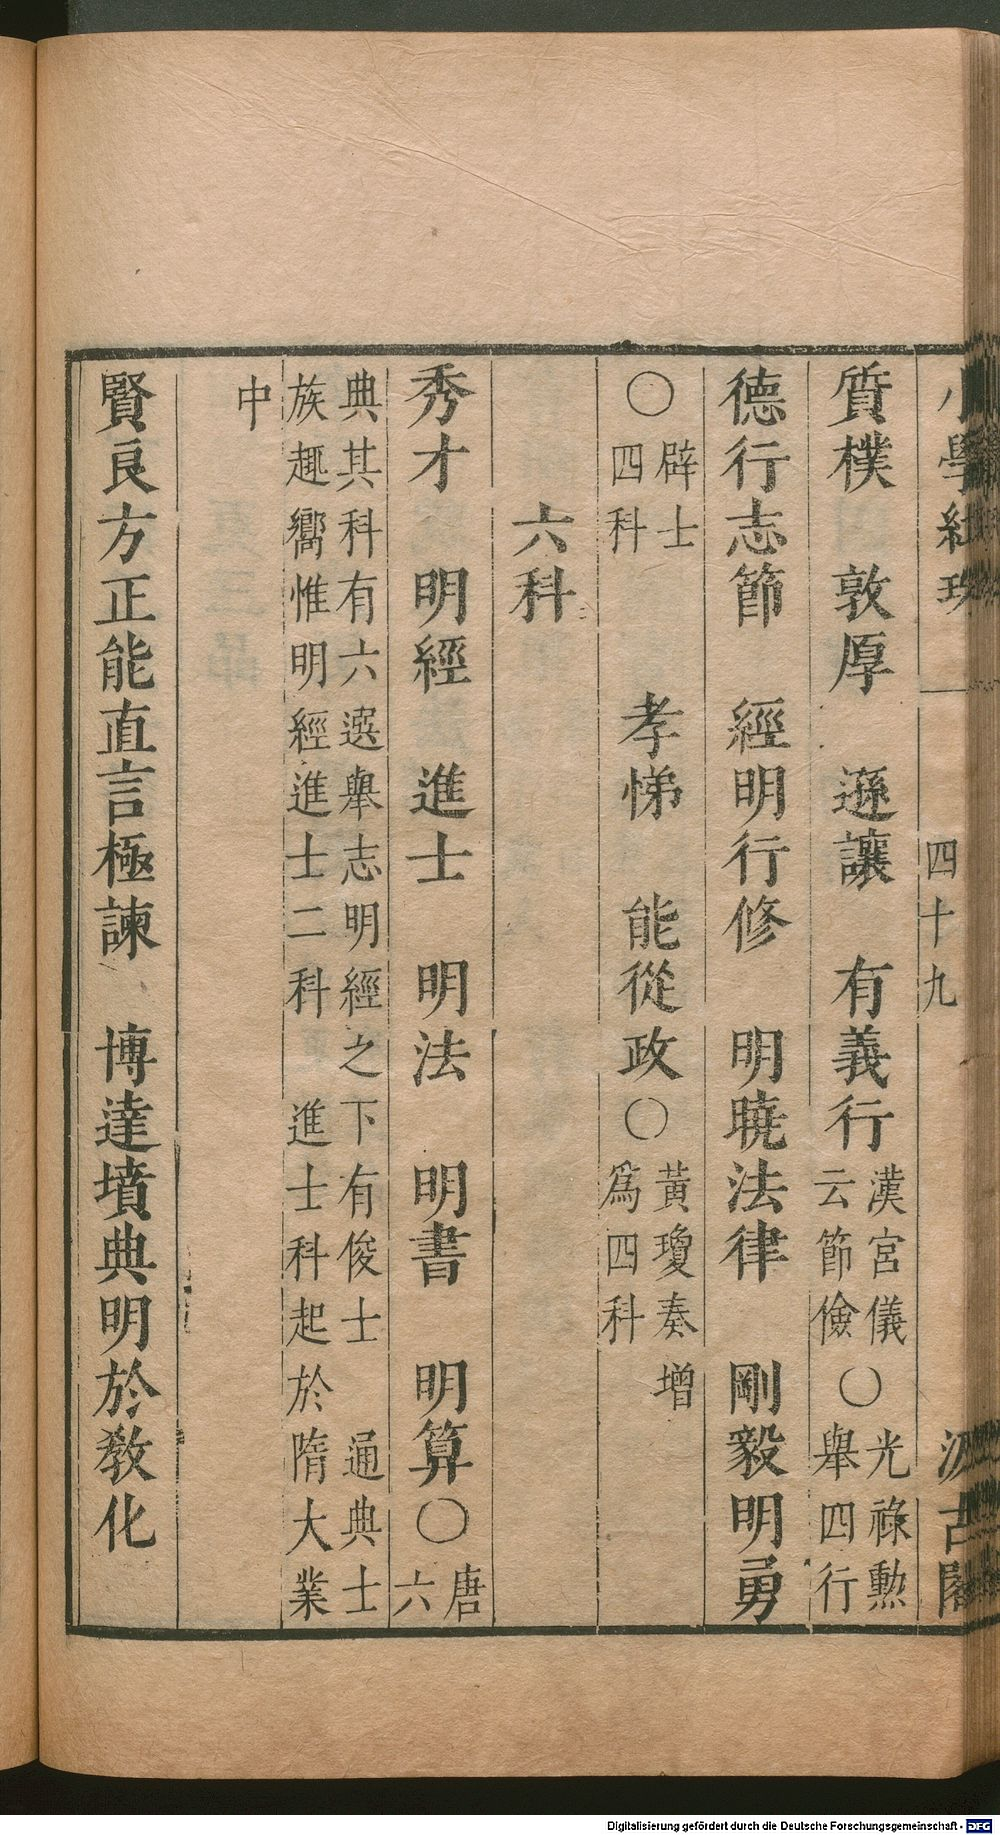 小學紺珠 四十九 汲古閣
質樸 敦厚 遜讓 有義行 漢宮儀云節儉 〇 光祿勲舉四行
德行志節 經明行修 明曉法律 剛毅明勇
〇 辟士四科 孝悌 能從政 〇 黃瓊奏增爲四科
六科
秀才 明經 進士 明法 明書 明算 〇 唐六
典其科有六選舉志明經之下有俊士 通典士
族趣嚮惟明經進士二科 進士科起於隋大業
中
賢良方正能直言極諫 博達墳典明於教化
Digitalisierung gefördert durch die Deutsche Forschungsgemeinschaft - DFG